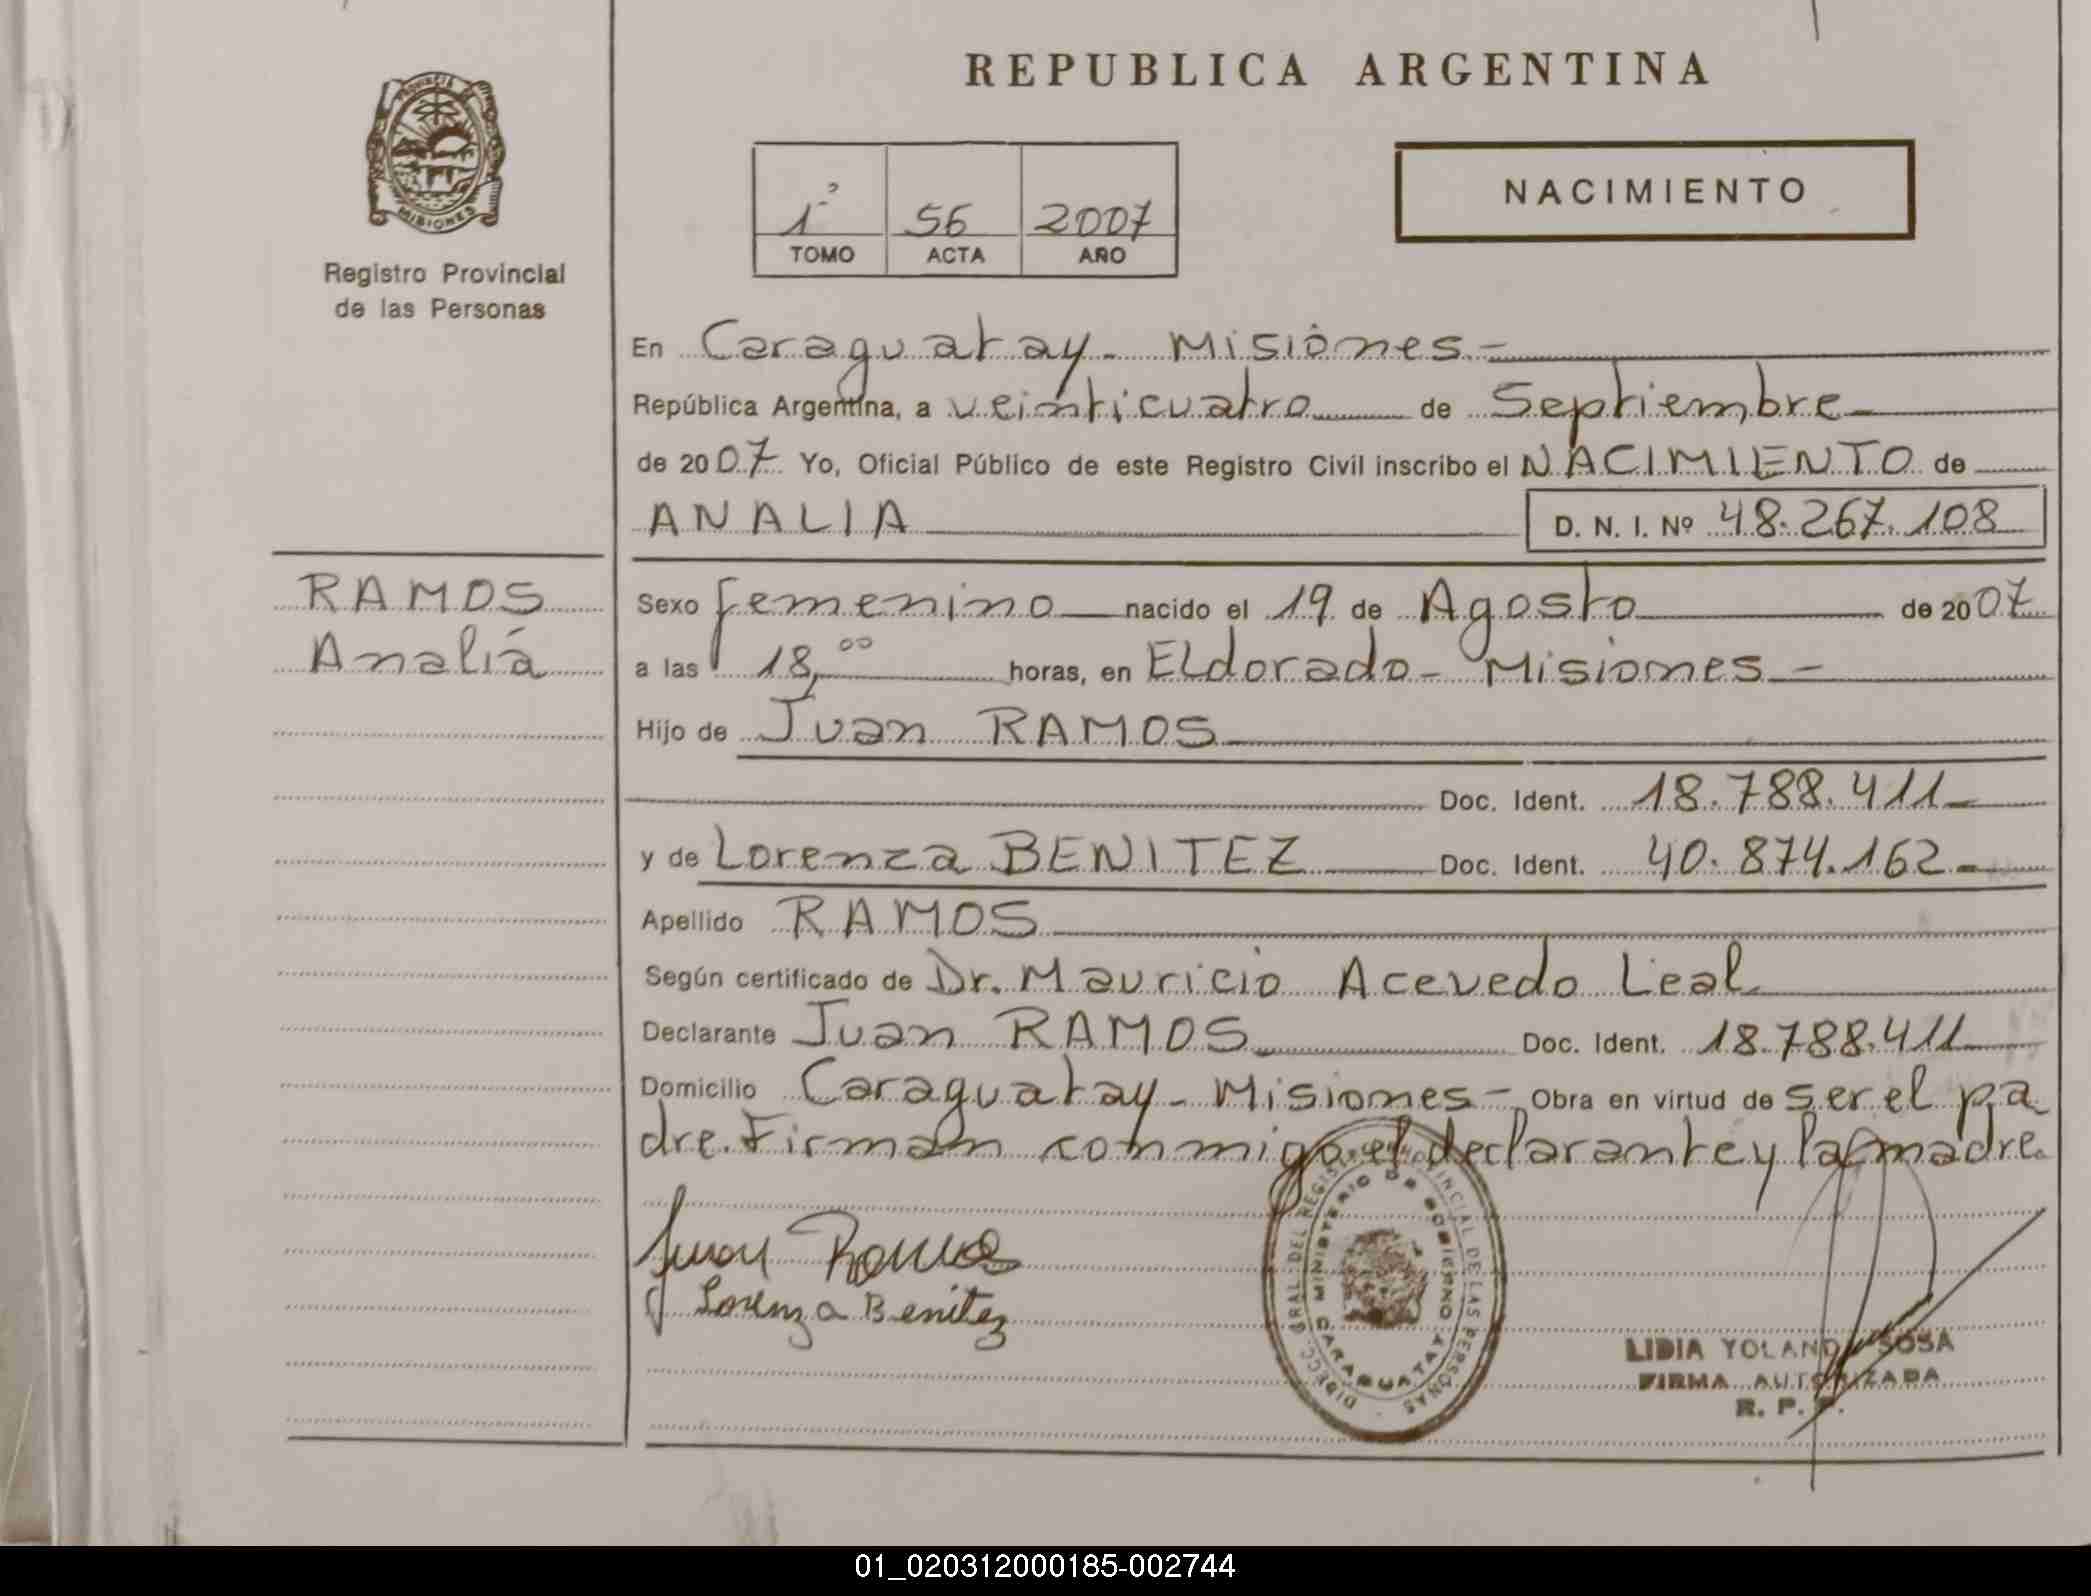 REPUBLICA ARGENTINA
PROVINCIA DE
MISIONES
Registro Provincial
de las Personas
1º 56 2007
TOMO ACTA AÑO
NACIMIENTO
En Caraguatay - Misiones -
República Argentina, a veinticuatro de Septiembre
de 2007 Yo, Oficial Público de este Registro Civil inscribo el NACIMIENTO de
ANALIA D. N. I. Nº 48.267.108
RAMOS
Analiá
Sexo femenino nacido el 19 de Agosto de 2007
a las 18,00 horas, en ELdorado - Misiones -
Hijo de Juan RAMOS
Doc. Ident. 18.788.411-
y de Lorenza BENITEZ Doc. Ident. 40.874.162-
Apellido RAMOS
Según certificado de Dr. Mauricio Acevedo Leal
Declarante Juan RAMOS Doc. Ident. 18.788.411
Domicilio Caraguatay - Misiones - Obra en virtud de ser el pa
dre. Firman conmigo el declarante y la madre.
Juan Ramos
Lorenza Benitez
DIRECC. GRAL. DEL REGISTRO PROVINCIAL DE LAS PERSONAS
MINISTERIO DE GOBIERNO
CARAGUATAY
LIDIA YOLANDA SOSA
FIRMA AUTORIZADA
R. P. P.
01_020312000185-002744